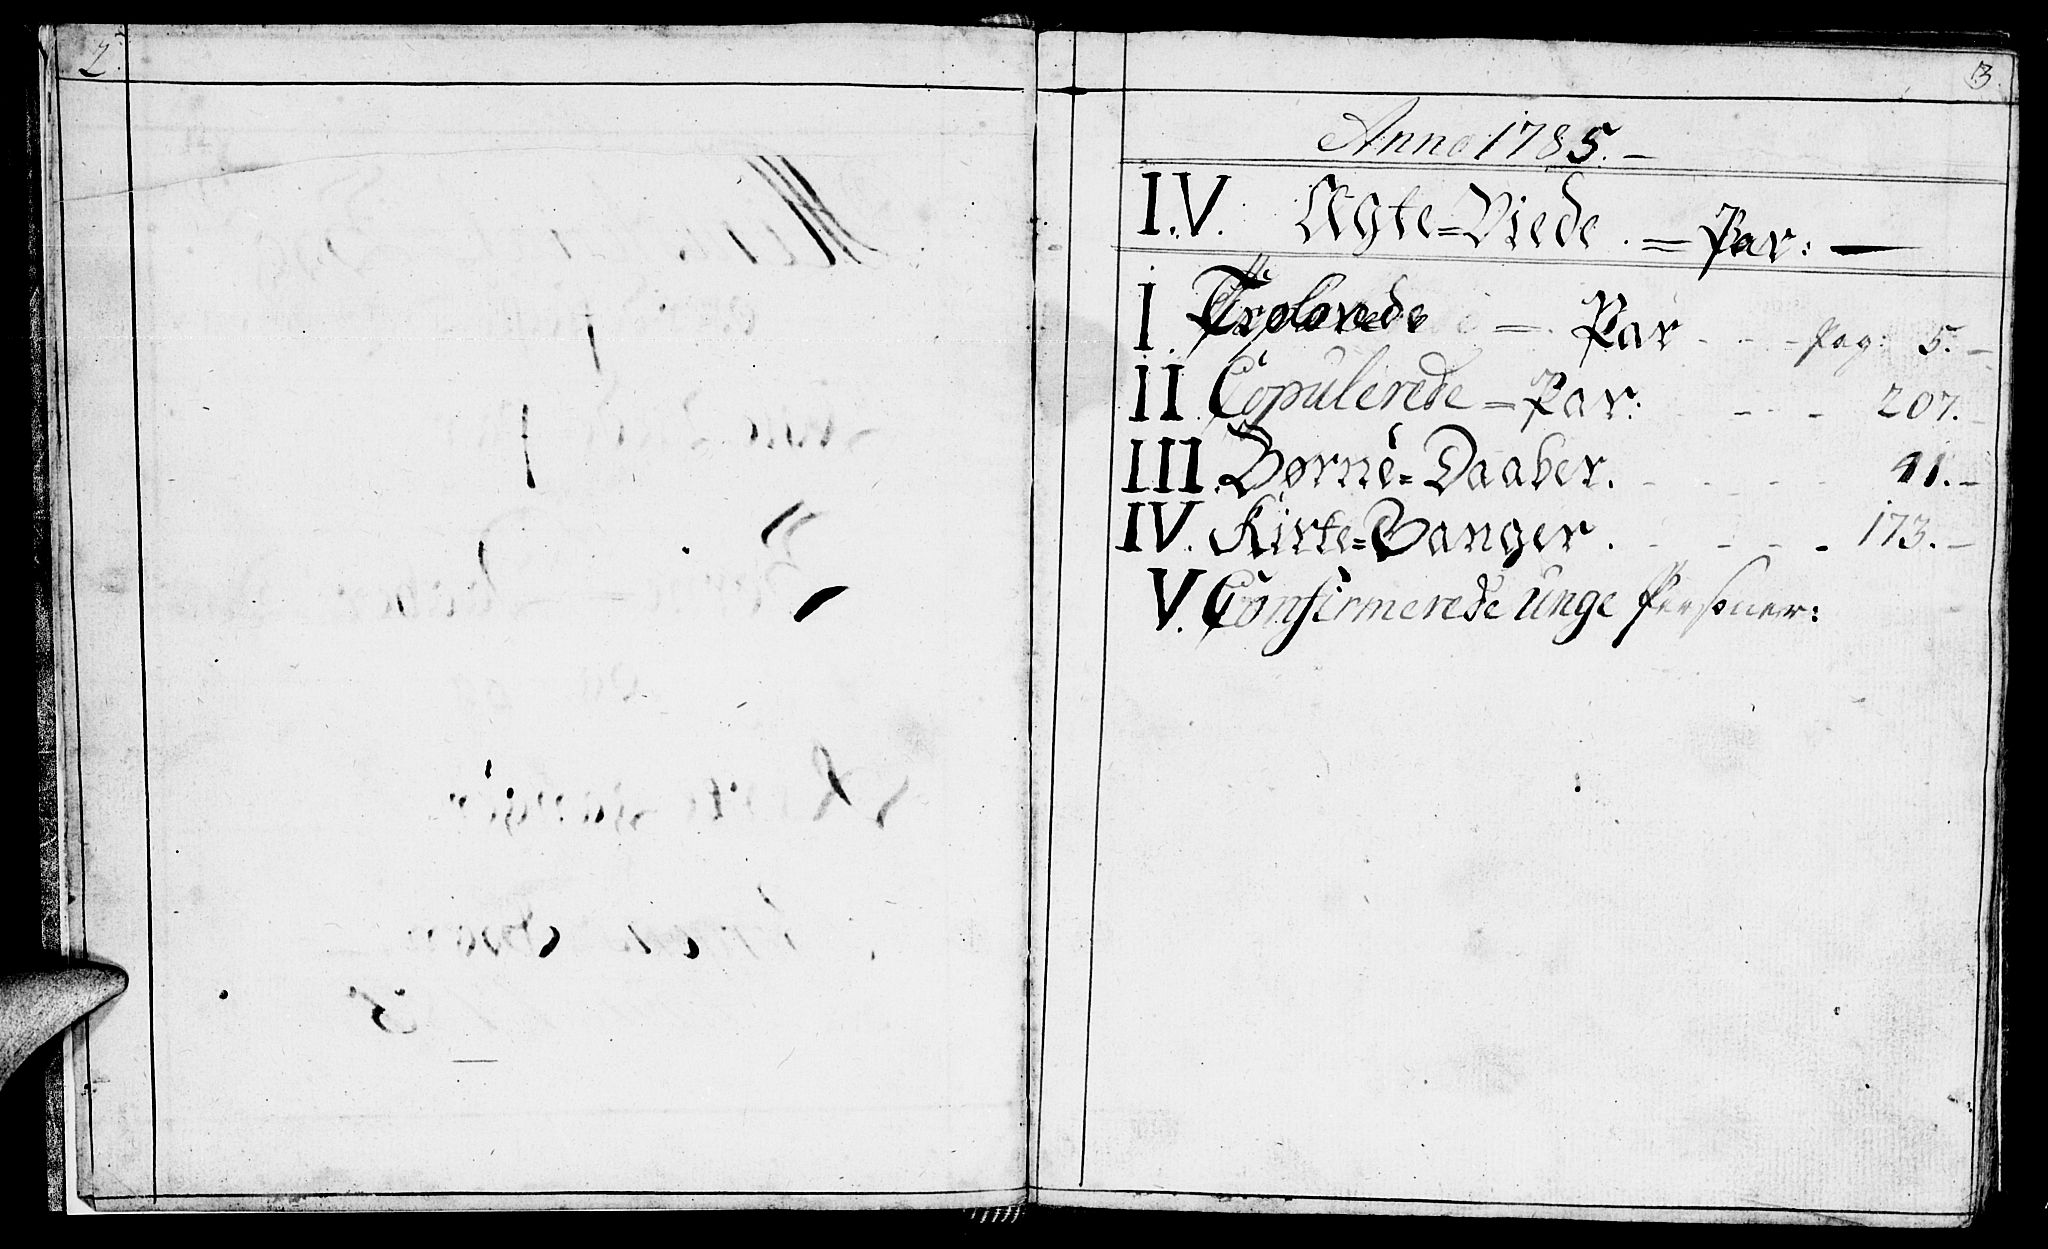 2.
3
Anno 1785.
I.V. Ægte=Viede. = Par:
I. Trolovede = Par - - - Pag: 5.
II. Copulerede = Par: - - - 207.
III. Børne=Daaber. - - - - 41.
IV. Kirke=Ganger. - - - - 173.
V. Confirmerede unge Personer: